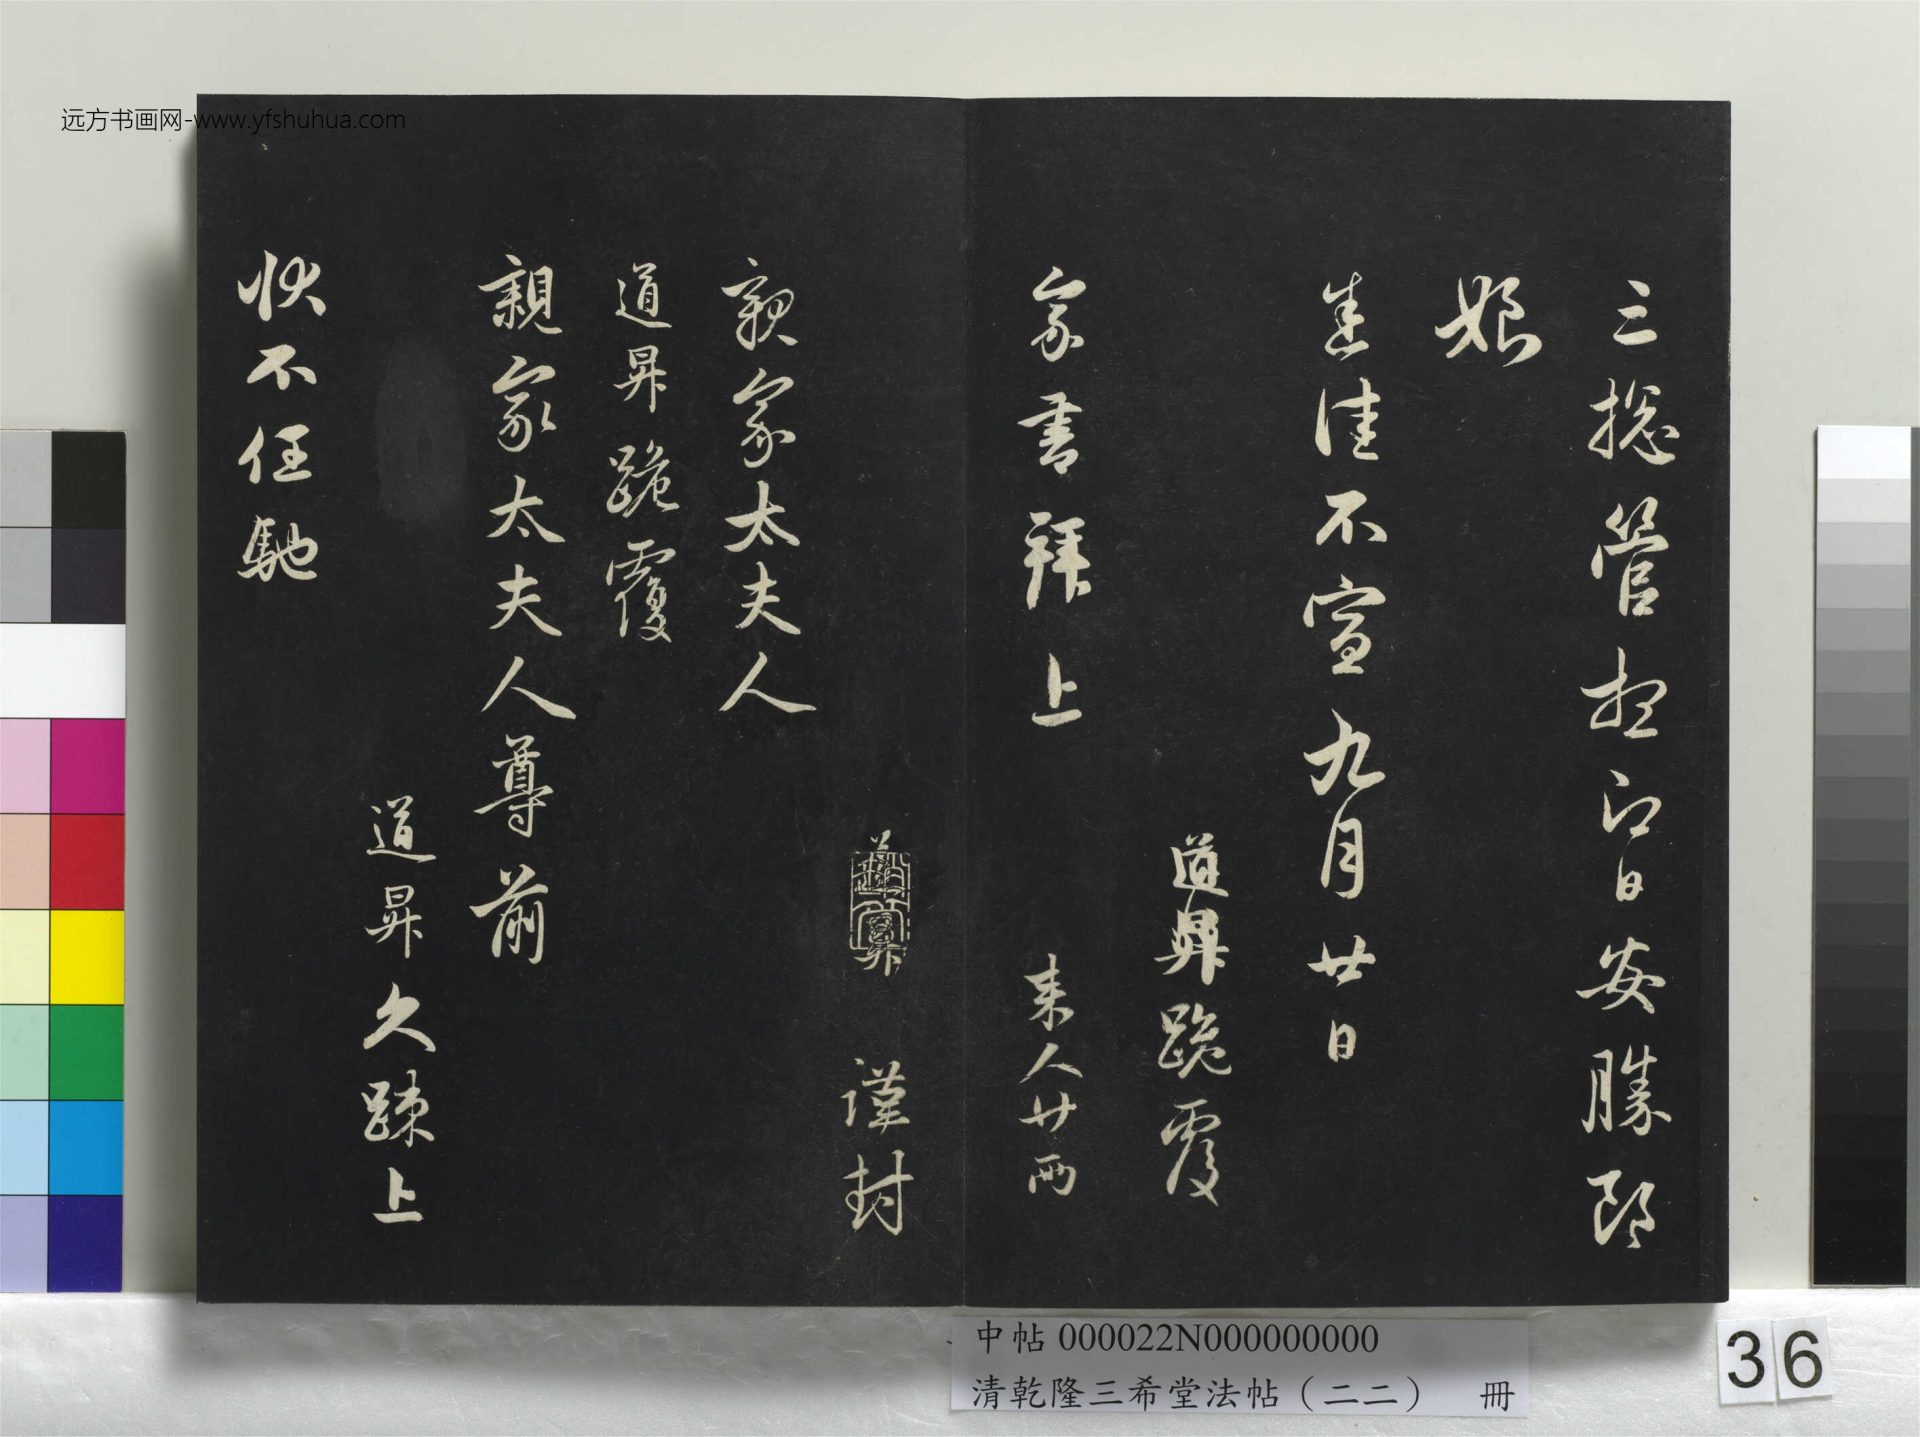 三揔管想即日安勝郎
娘
悉佳不宣九月廿日
道昇跪覆
家書拜上
来人廿两
謹封
親家太夫人
道昇跪覆
親家太夫人尊前
道昇久疎上
状不任馳
远方书画网-www.yfshuhua.com
中帖 000022N000000000
清乾隆三希堂法帖(二二) 冊
36